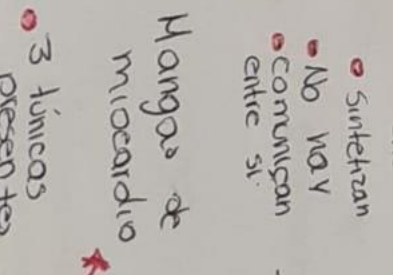 Sintetizan
No hay
comunican
entre si.
Mangas de
miocardio
3 túnicas
presentes